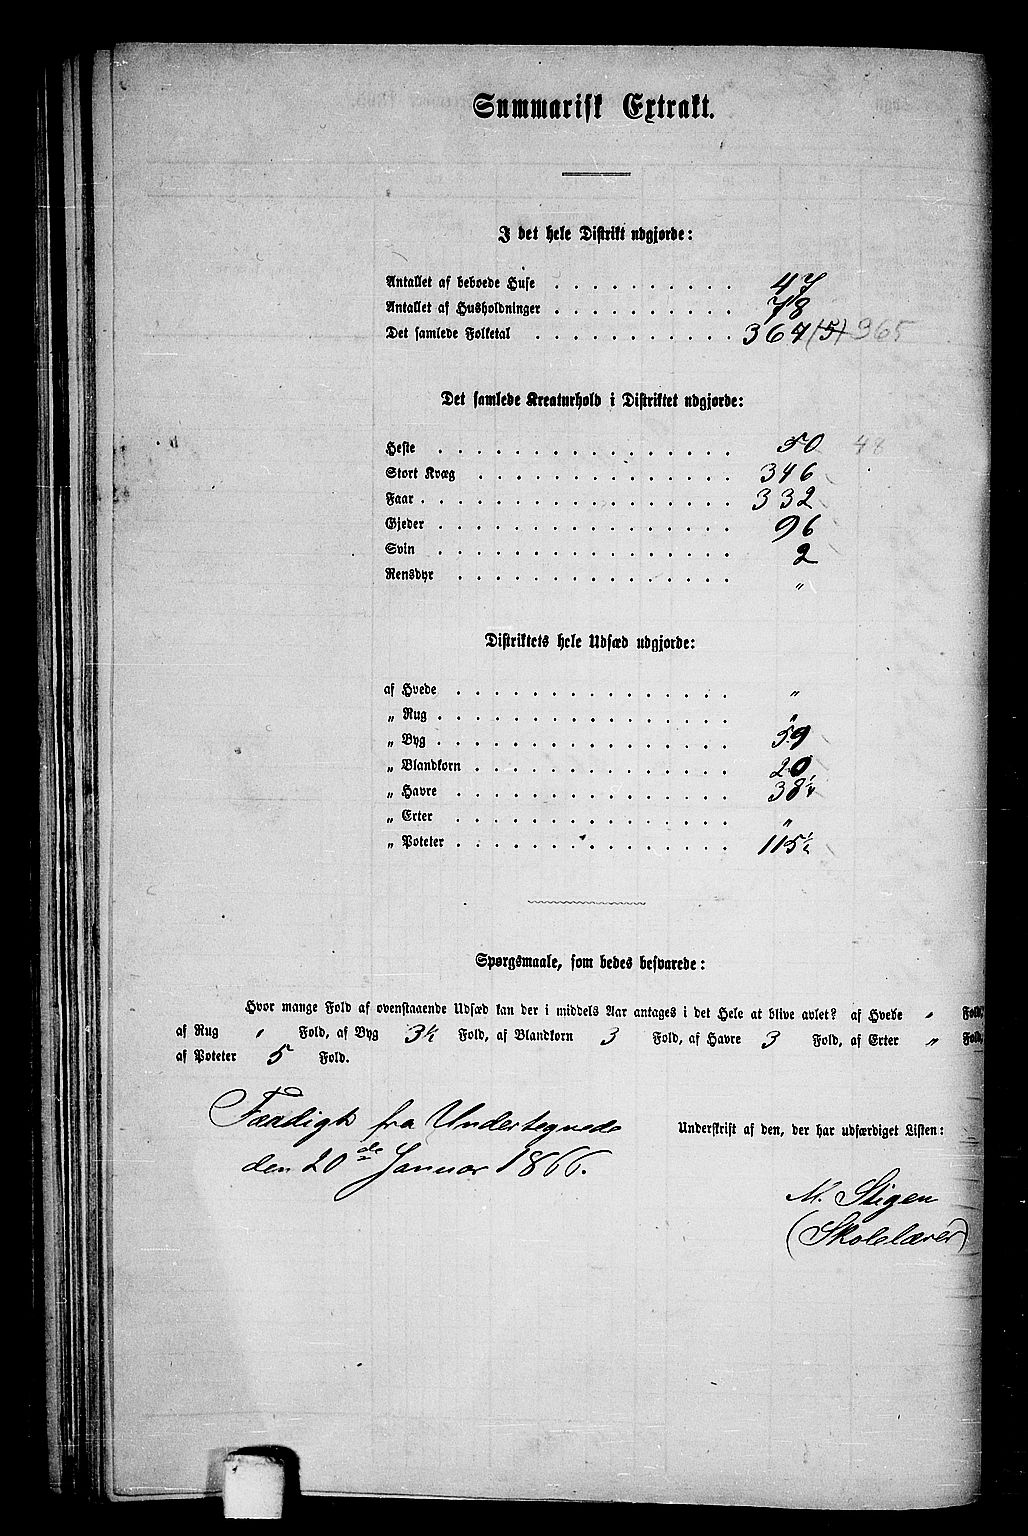 Summarisk Extrakt.
I det hele Distrikt udgjorde:
Antallet af beboede Huse . . . . . . . . . . 47
Antallet af Husholdninger . . . . . . . . . . 78
Det samlede Folketal . . . . . . . . . . . 367 (5) 365
Det samlede Kreaturhold i Distriktet udgjorde:
Heste . . . . . . . . . . . . . . . . 50 48
Stort Kvæg . . . . . . . . . . . . . . 346
Faar . . . . . . . . . . . . . . . . . 332
Gjeder . . . . . . . . . . . . . . . . 96
Svin . . . . . . . . . . . . . . . . 2
Rensdyr . . . . . . . . . . . . . . . „
Distriktets hele Udsæd udgjorde:
af Hvede . . . . . . . . . . . . . . „
„ Rug . . . . . . . . . . . . . . . „
„ Byg . . . . . . . . . . . . . . . 59
„ Blandkorn . . . . . . . . . . . . . 20
„ Havre . . . . . . . . . . . . . . 38¼
„ Erter . . . . . . . . . . . . . . „
„ Poteter . . . . . . . . . . . . . . 115½
Spørgsmaale, som bedes besvarede:
Hvor mange Fold af ovenstaaende Udsæd kan der i middels Aar antages i det Hele at blive avlet? af Hvede „ Fold,
af Rug „ Fold, af Byg 3½ Fold, af Blandkorn 3 Fold, af Havre 3 Fold, af Erter „ Fold,
af Poteter 5 Fold.
Færdigt fra Undertegnede
den 20de Januar 1866.
Underskrift af den, der har udfærdiget Listen:
M. Stigen
(Skolelærer)